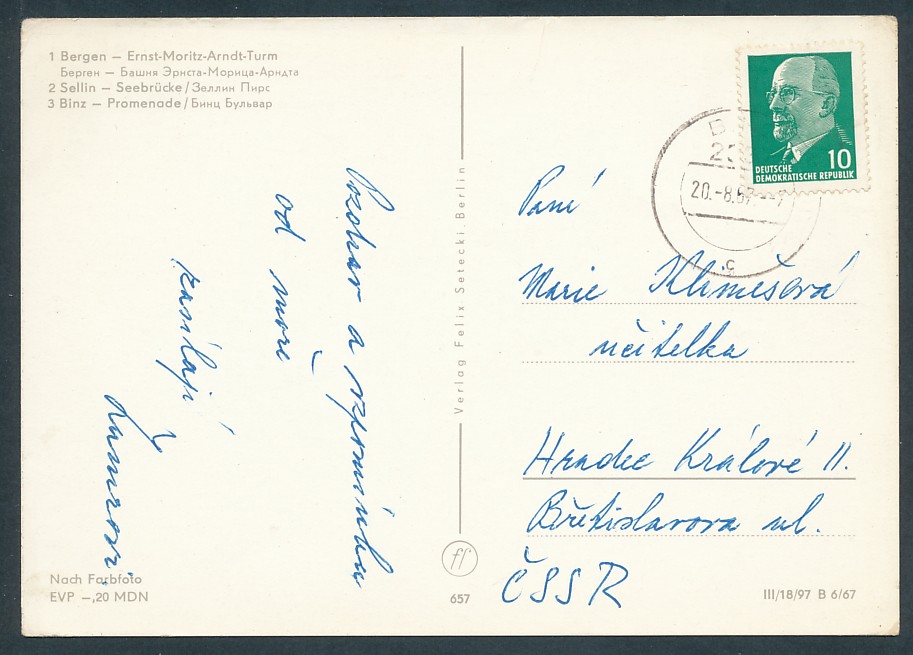 1 Bergen – Ernst-Moritz-Arndt-Turm
Берген – Башня Эрнста-Морица-Арндта
2 Sellin – Seebrücke/Зеллин Пирс
3 Binz – Promenade/Бинц Бульвар
Pozdrav a vzpomínku
od moře
zasílají
Verlag Felix Setecki, Berlin
ff
657
Nach Farbfoto
EVP –,20 MDN
10
DEUTSCHE
DEMOKRATISCHE REPUBLIK
20.-8.67
c
Paní
Marie Klimešová
učitelka
Hradec Králové II.
Břetislavova ul.
ČSSR
III/18/97 B 6/67